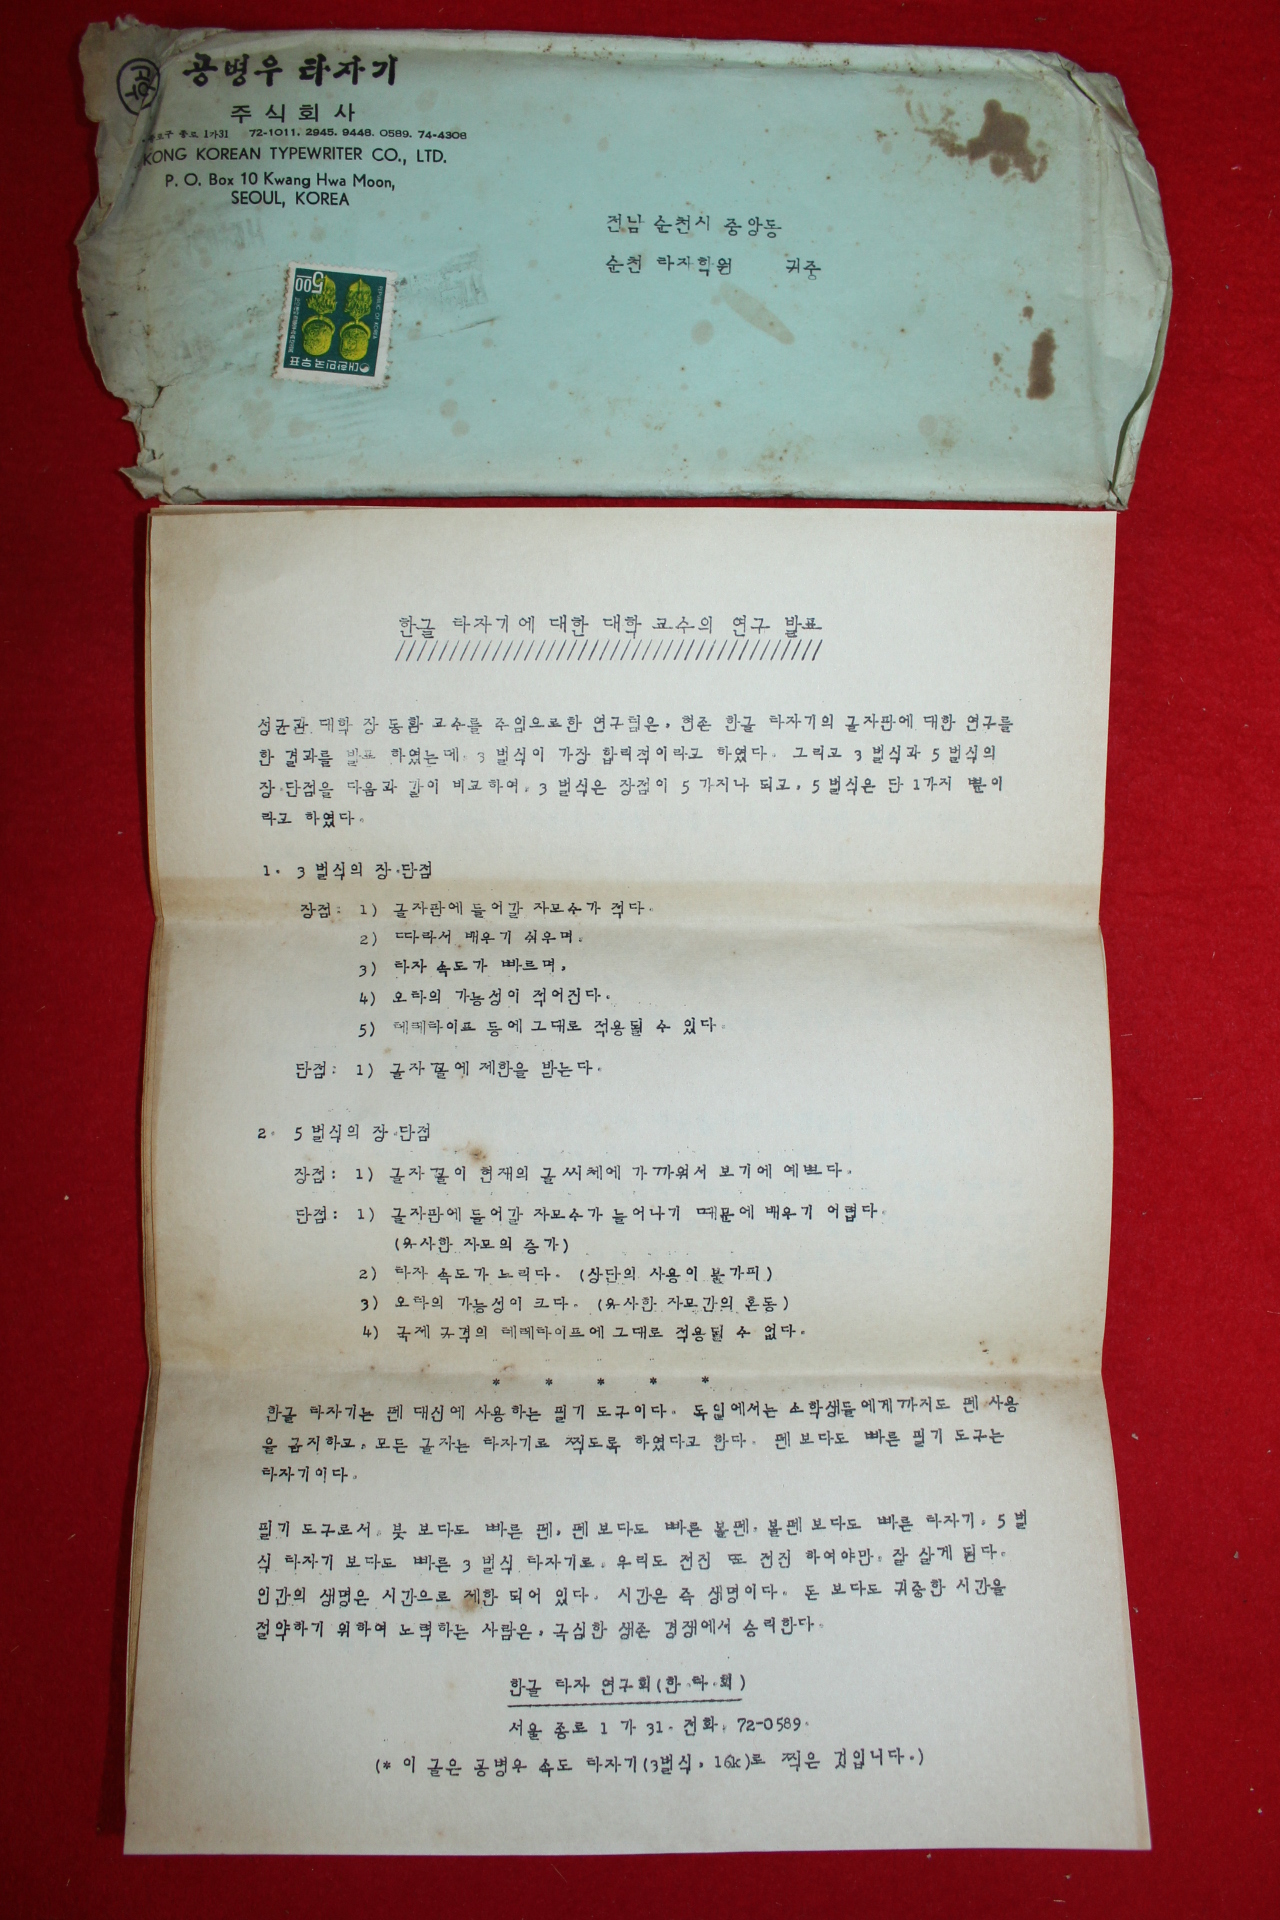 공병우 타자기
주식회사
종로구 종로 1가31 72-1011. 2945. 9448. 0589. 74-4308
KONG KOREAN TYPEWRITER CO., LTD.
P. O. Box 10 Kwang Hwa Moon,
SEOUL, KOREA
5.00
REPUBLIC OF KOREA
대한민국우표
전남 순천시 중앙동
순천 타자학원 귀중
한글 타자기에 대한 대학 교수의 연구 발표
////////////////////////////////////////
성균관 대학 장 동환 교수를 주임으로한 연구팀은, 현존 한글 타자기의 글자판에 대한 연구를
한 결과를 발표 하였는데, 3 벌식이 가장 합리적이라고 하였다. 그리고 3 벌식과 5 벌식의
장.단점을 다음과 같이 비교하여, 3 벌식은 장점이 5 가지나 되고, 5 벌식은 단 1가지 뿐이
라고 하였다.
1. 3 벌식의 장.단점
장점: 1) 글자판에 들어갈 자모수가 적다.
2) 따라서 배우기 쉬우며.
3) 타자 속도가 빠르며,
4) 오타의 가능성이 적어진다.
5) 테레타이프 등에 그대로 적용될 수 있다.
단점: 1) 글자 꼴에 제한을 받는다.
2. 5 벌식의 장.단점
장점: 1) 글자 꼴이 현재의 글씨체에 가까워서 보기에 예쁘다.
단점: 1) 글자판에 들어갈 자모수가 늘어나기 때문에 배우기 어렵다.
(유사한 자모의 증가)
2) 타자 속도가 느리다. (상단의 사용이 불가피)
3) 오타의 가능성이 크다. (유사한 자모간의 혼동)
4) 국제 규격의 테레타이프에 그대로 적용될 수 없다.
* * * * *
한글 타자기는 펜 대신에 사용하는 필기 도구이다. 독일에서는 소학생들에게까지도 펜 사용
을 금지하고, 모든 글자는 타자기로 찍도록 하였다고 한다. 펜 보다도 빠른 필기 도구는
타자기이다.
필기 도구로서, 붓 보다도 빠른 펜, 펜 보다도 빠른 볼펜, 볼펜 보다도 빠른 타자기, 5 벌
식 타자기 보다도 빠른 3 벌식 타자기로, 우리도 전진 또 전진 하여야만, 잘 살게 된다.
인간의 생명은 시간으로 제한 되어 있다. 시간은 즉 생명이다. 돈 보다도 귀중한 시간을
절약하기 위하여 노력하는 사람은, 극심한 생존 경쟁에서 승리한다.
한글 타자 연구회(한.타.회)
서울 종로 1 가 31. 전화, 72-0589.
(* 이 글은 공병우 속도 타자기(3벌식, 16k)로 찍은 것입니다.)